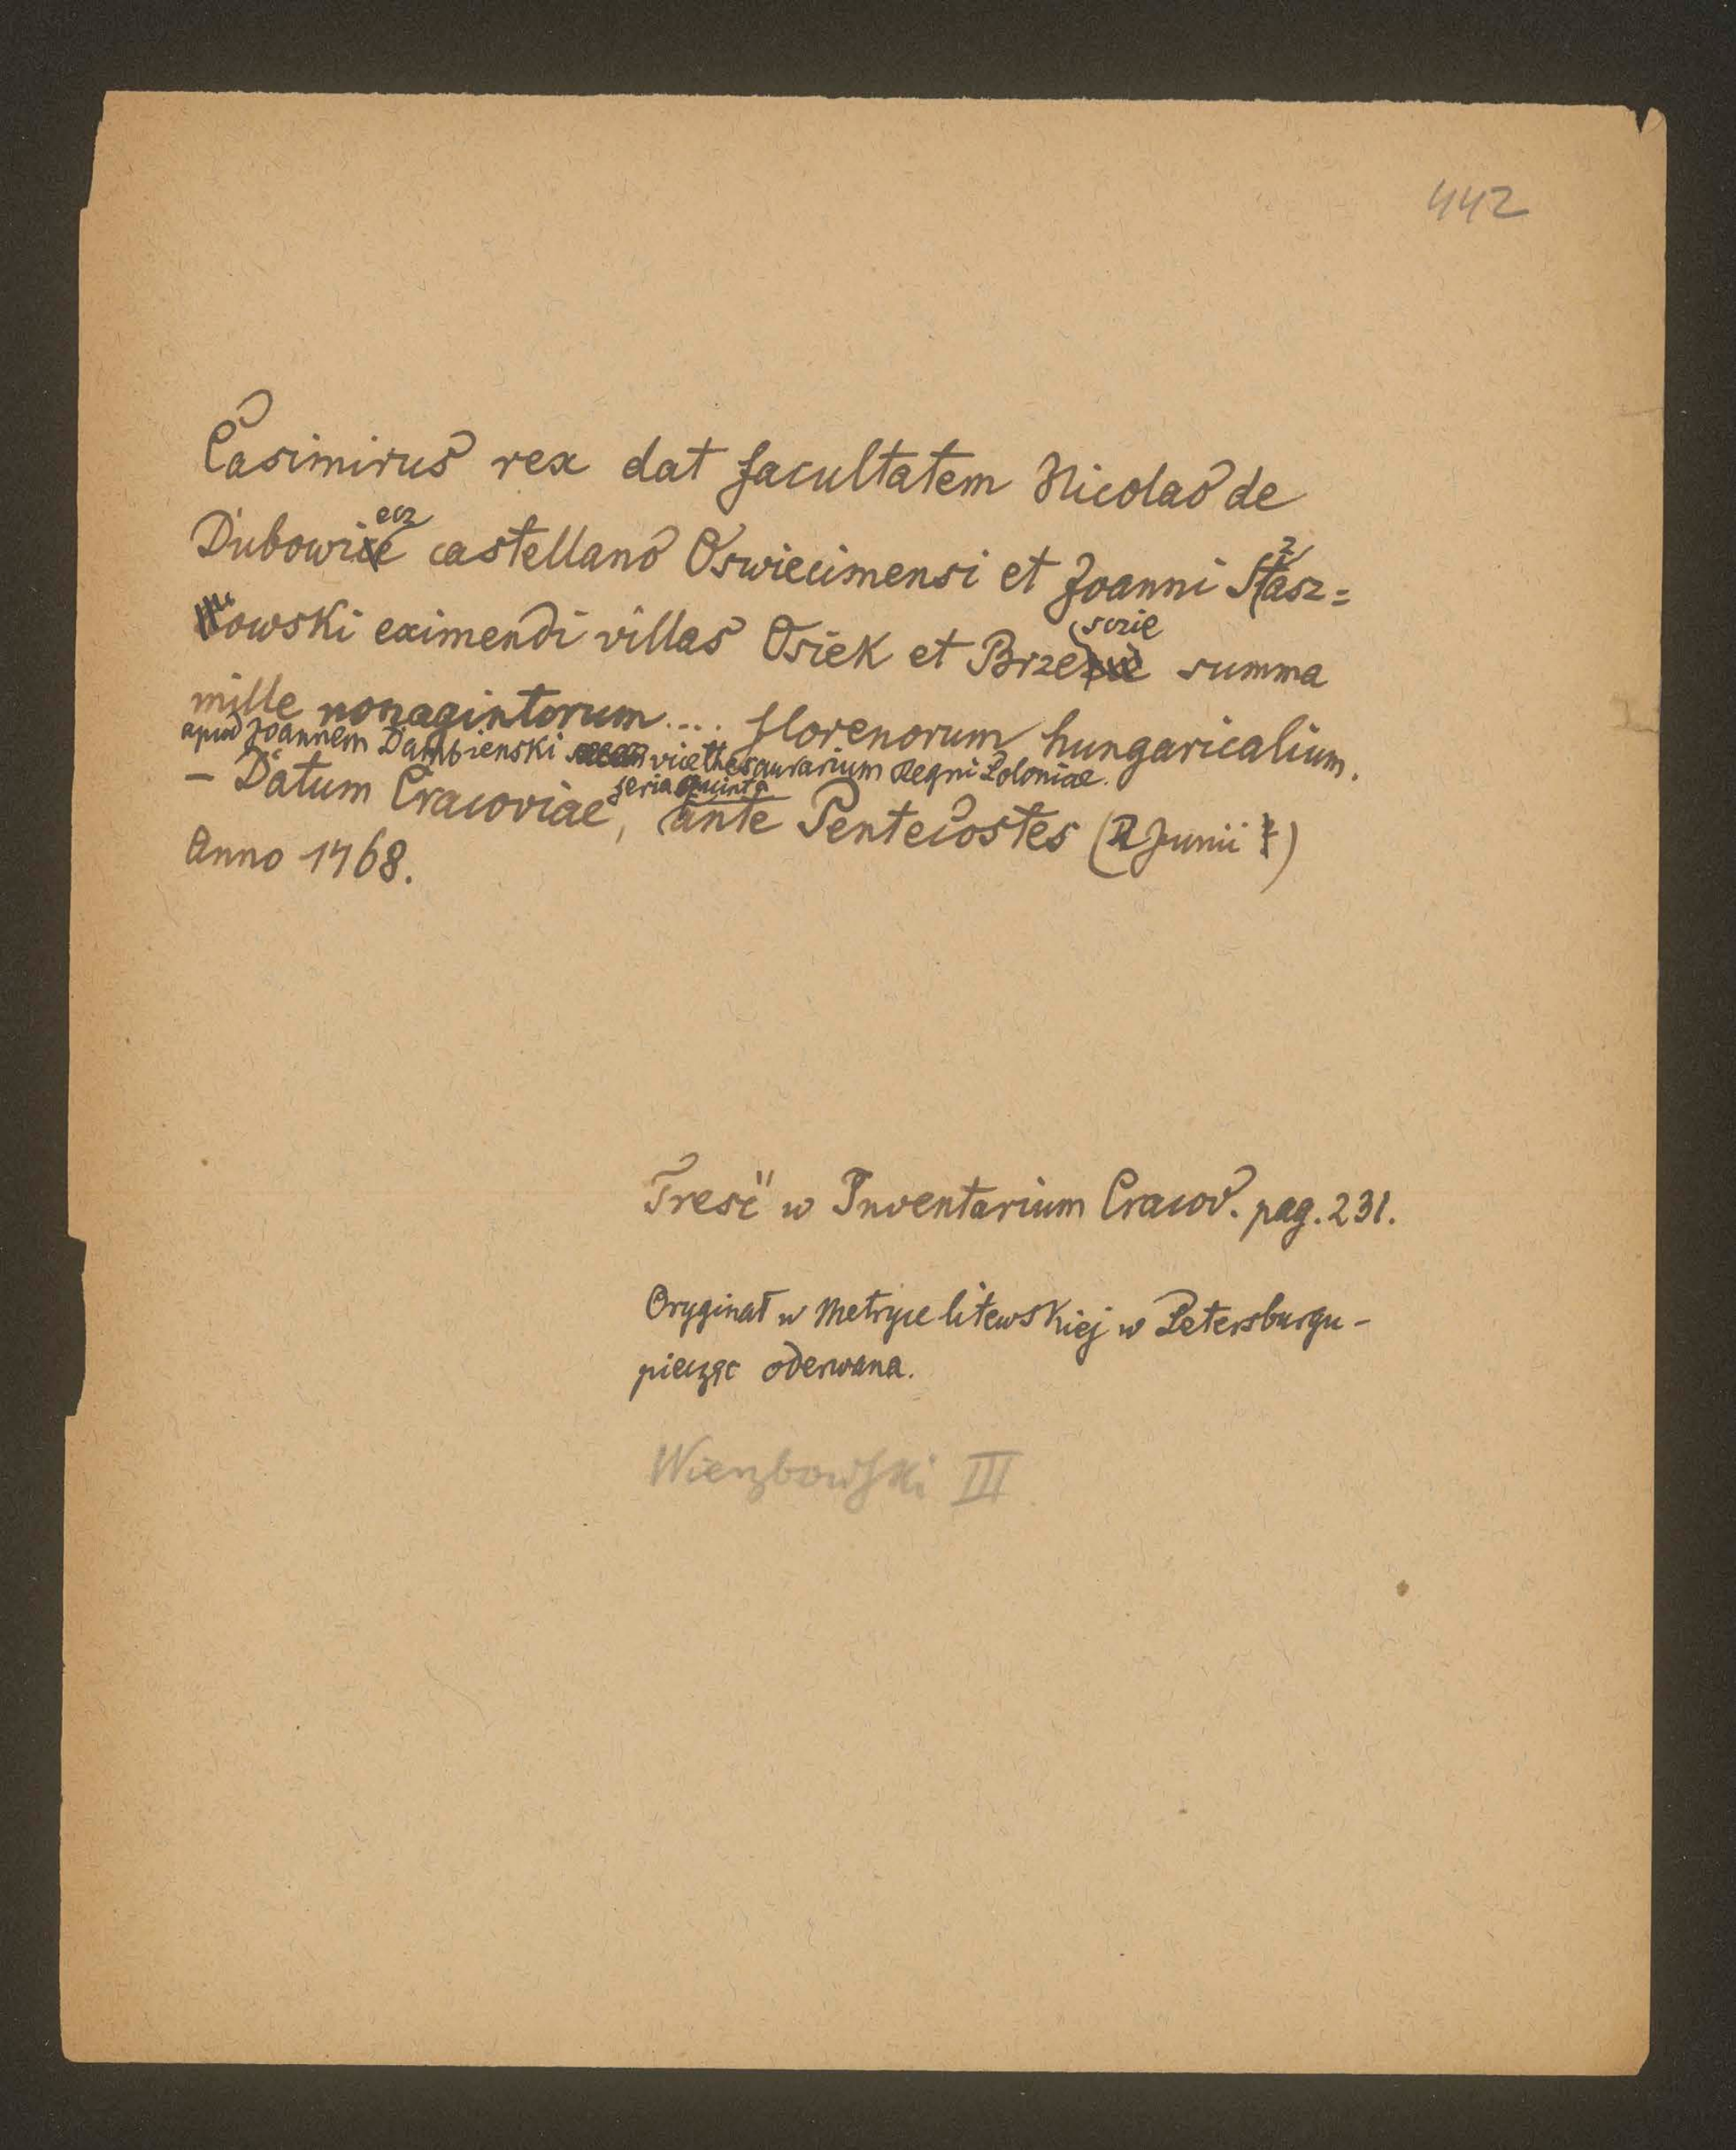 442
Casimirus rex dat facultatem Nicolao de
Dubowiecz castellano Oswiecimensi et Joanni Stasz=
kowski eximendi villas Osiek et Brzescie summa
mille nonagintorum.... florenorum hungaricalium.
apud Joannem Dambienski vicethesaurarium Regni Poloniae.
– Datum Cracoviae, feria quinta ante Pentecostes (2 Junii)
Anno 1468.
Treść w Inventarium Cracov. pag. 231.
Oryginał w Metryce litewskiej w Petersburgu –
pieczęć oderwana.
Wierzbowski III